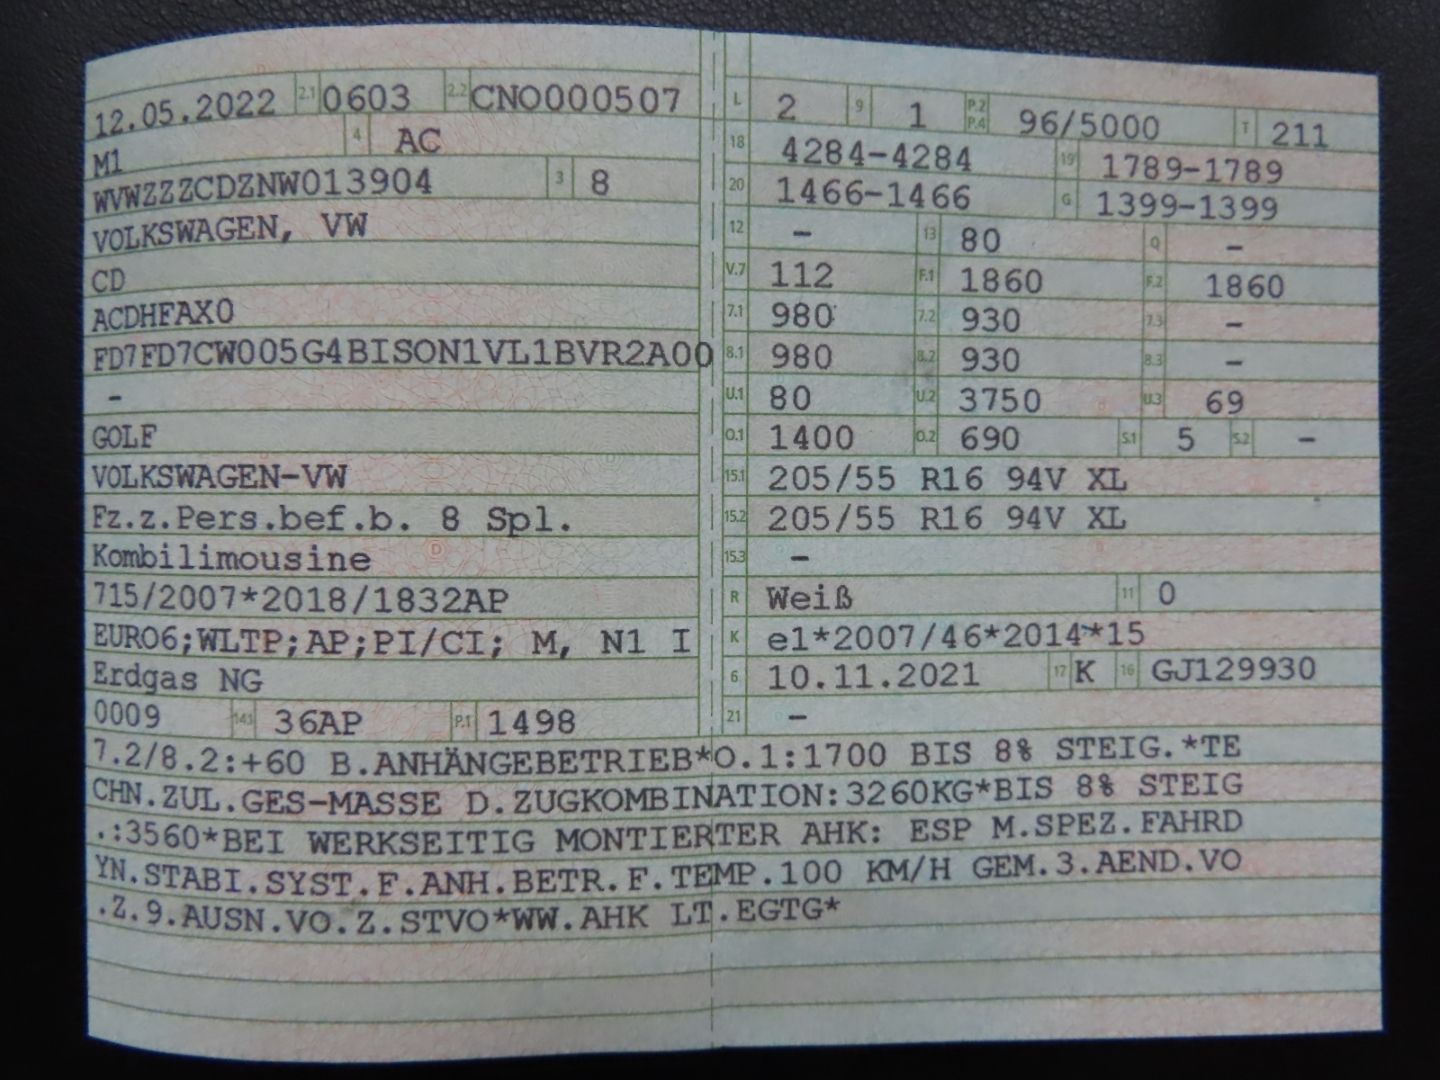 12.05.2022 2.1 0603 2.2 CNO000507
M1 4 AC
WVWZZZCDZNW013904 3 8
VOLKSWAGEN, VW
CD
ACDHFAX0
FD7FD7CW005G4BISON1VL1BVR2A00
-
GOLF
VOLKSWAGEN-VW
Fz.z.Pers.bef.b. 8 Spl.
Kombilimousine
715/2007*2018/1832AP
EURO6;WLTP;AP;PI/CI; M, N1 I
Erdgas NG
0009 14.1 36AP P.1 1498
L 2 9 1 P.2 P.4 96/5000 T 211
18 4284-4284 19 1789-1789
20 1466-1466 G 1399-1399
12 - 13 80 Q -
V.7 112 F.1 1860 F.2 1860
7.1 980 7.2 930 7.3 -
8.1 980 8.2 930 8.3 -
U.1 80 U.2 3750 U.3 69
O.1 1400 O.2 690 S.1 5 S.2 -
15.1 205/55 R16 94V XL
15.2 205/55 R16 94V XL
15.3 -
R Weiß 11 0
K e1*2007/46*2014*15
6 10.11.2021 17 K 16 GJ129930
21 -
7.2/8.2:+60 B.ANHÄNGEBETRIEB*O.1:1700 BIS 8% STEIG.*TE
CHN.ZUL.GES-MASSE D.ZUGKOMBINATION:3260KG*BIS 8% STEIG
.:3560*BEI WERKSEITIG MONTIERTER AHK: ESP M.SPEZ.FAHRD
YN.STABI.SYST.F.ANH.BETR.F.TEMP.100 KM/H GEM.3.AEND.VO
.Z.9.AUSN.VO.Z.STVO*WW.AHK LT.EGTG*